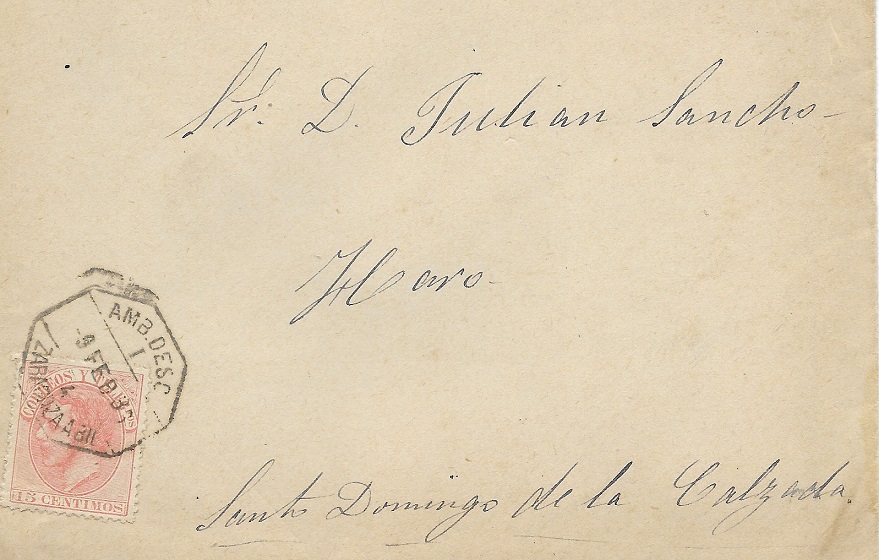 Sr. D. Julian Sancho-
Haro-
AMB. DESC
1
-9 FEB 8
CORREOS Y
15 CENTIMOS
Santo Domingo de la Calzada.